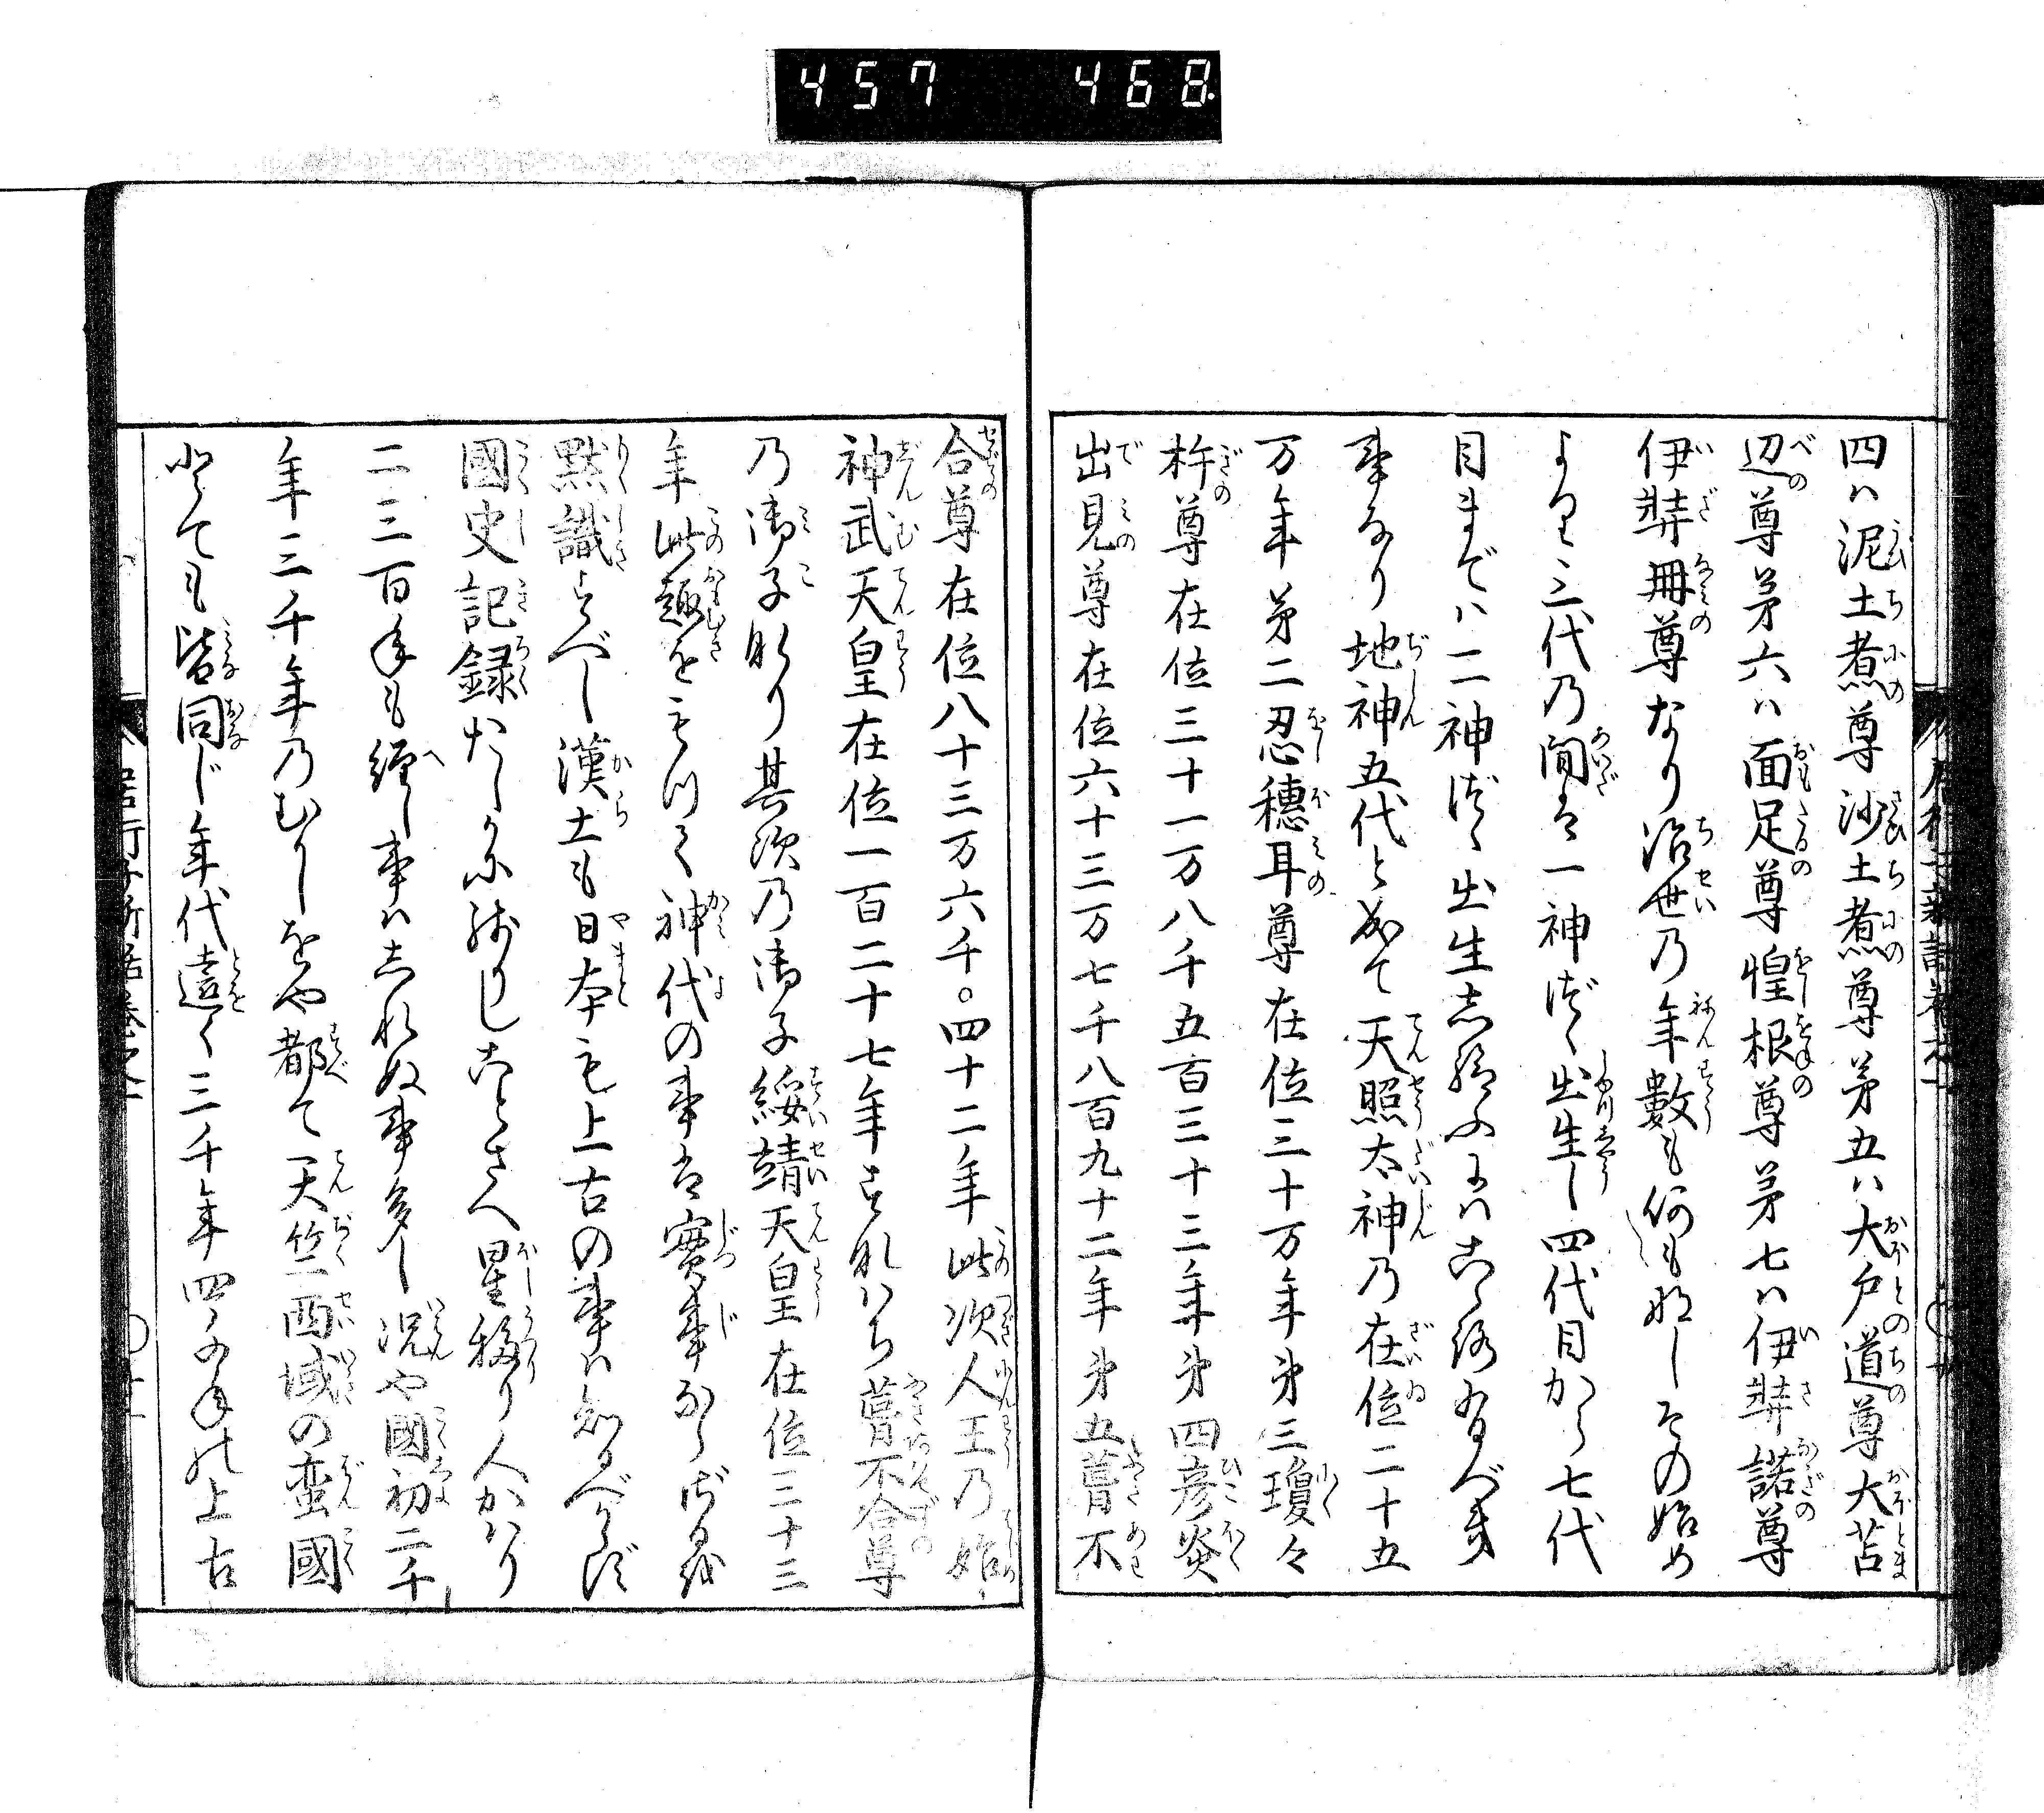 457 468
四ハ泥土煮尊沙土煮尊苐五ハ大戸道尊大苫
辺尊苐六ハ面足尊惶根尊苐七ハ伊弉諾尊
伊弉冊尊なり治世乃年數も何も如しその始め
より三代乃間は一神づゝ出生し四代目から七代
目までハ二神づゝ出生し給ふ
事なり地神五代と天照太神乃在位二十五
万年苐二忍穗耳尊在位三十万年苐三瓊々
杵尊在位三十一万八千五百三十三年苐四彦炎
出見尊在位六十三万七千八百九十二年苐五葺不
合尊在位八十三万六千。四十二年此次人王乃始
神武天皇在位一百二十七年すなハち葺不合尊
乃御子なり其次乃御子綏靖天皇在位三十三
年此趣をもつて神代の事は實事ならざるを
黙識すべし漢土も日本も上古の事ハ知るべからず
國史記録たしかに殘りしことさへ星移り人かハり
二三百年も經し事ハしれぬ事多し况や國初二千
年三千年乃むかしをや都て天竺西域の蛮國
とても皆同じ年代遠く三千年四千年の上古